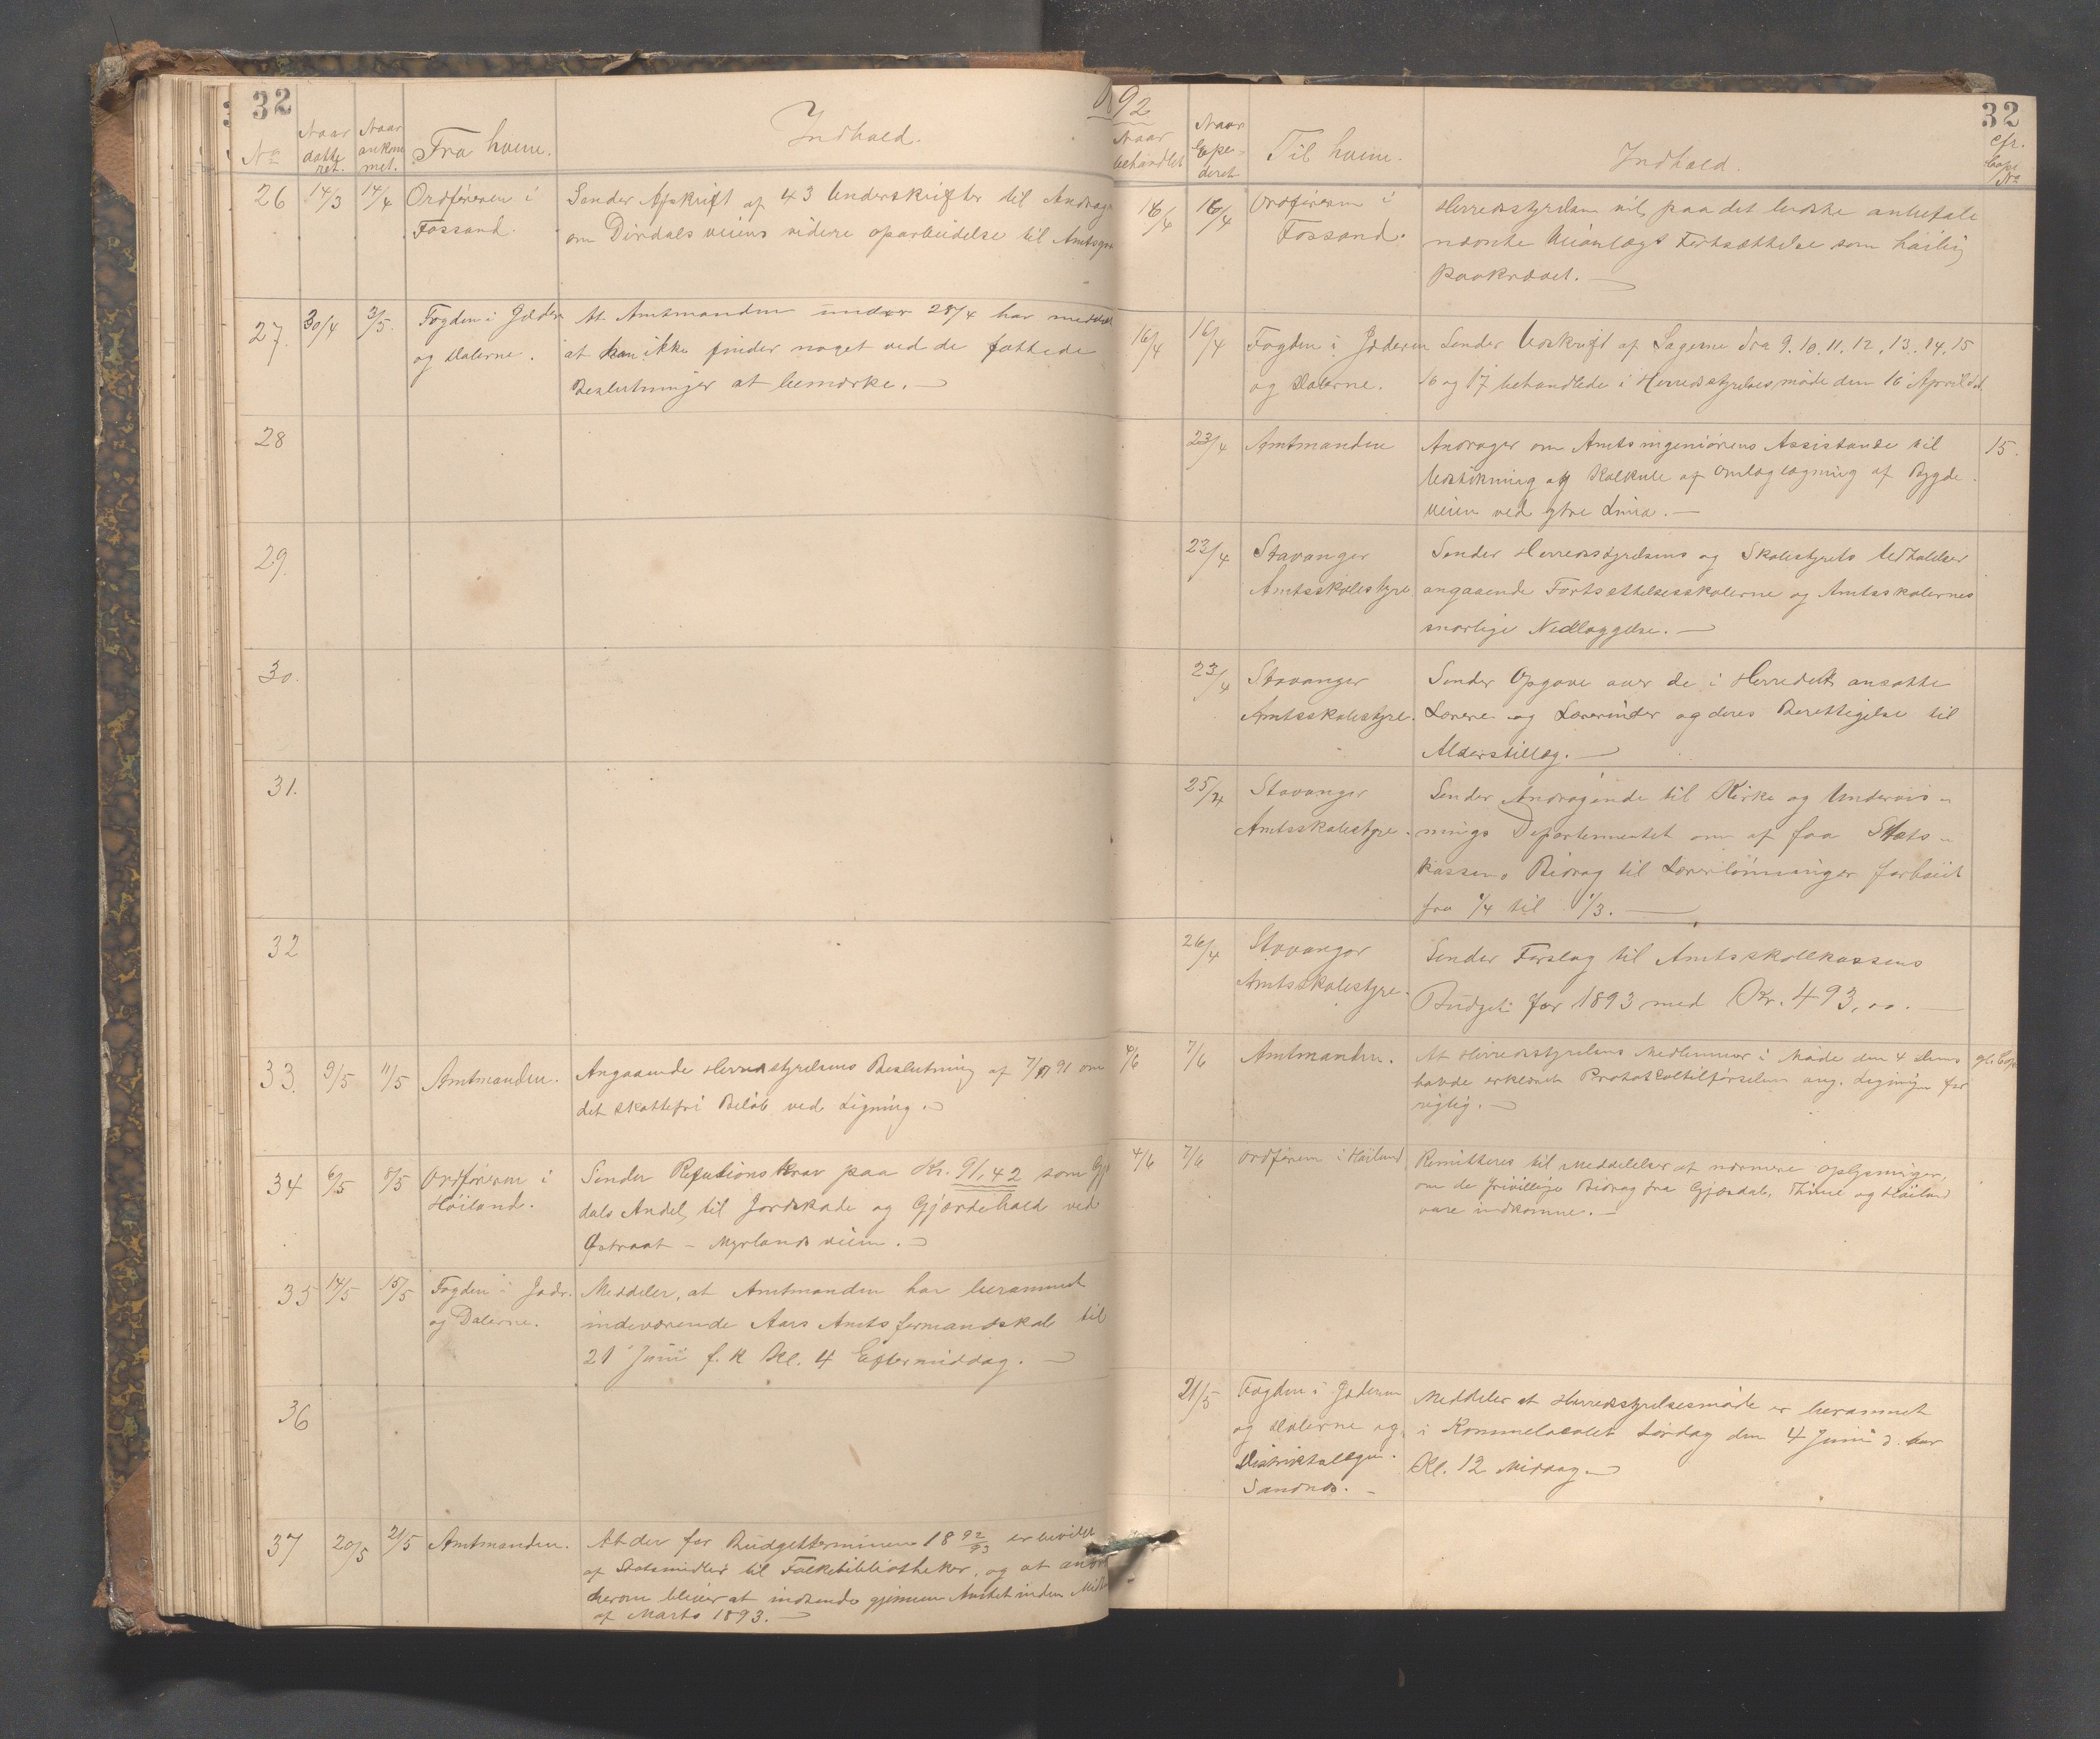 32
No
Naar datteret.
Naar ankommet.
Fra hvem.
Indhold.
26 14/3 14/4 Ordføreren i Sender Afskrift af 43 Underskrifter til
Fossand. om Dirdals veiens videre oparbeidelse til
27. 30/4 3/5. Fogden i Jæderen At Amtmanden under 28/4 har meddelt
og Dalerne. at han ikke finder noget ved de fattede
Beslutninger at bemærke.
28
29.
30.
31.
32
33. 9/5 11/5 Amtmanden. Angaaende Herredsstyrelsens Beslutning af 91 om
det skattefri Beløb ved Ligning.
34 6/5 8/5 Ordføreren i Sender Refusionskrav paa Kr. 91,42 som
Høiland. dals Andel til Jordskade og Gjærdehold ved
Østraat - Myrlands veien.
35 14/5 15/5 Fogden i Jæd. Meddeler, at Amtmanden har berammet
og Dalerne. indeværende Aars Amtsformandskab til
21 Juni f. K Kl. 4 Eftermiddag.
36
37 20/5 21/5 Amtmanden. At der for Budgetterminen 1892/93 er bevilget
af Statsmidler til Folkebibliotheker, og at
herom bliver at indsende gjennem Amtet inden
af Marts 1893.
92
32
Naar behandlet
Naar Expederet
Til hvem.
Indhold.
cfr. Copi No
16/4 16/4 Ordføreren i Herredsstyrelsen vil paa det bedste anbefale
Fossand. nævnte Veianlægs Fortsættelse som høilig
paakrævet.
16/4 16/4 Fogden i Jæderen Sender Udskrift af Sagerne fra 9. 10. 11. 12. 13. 14. 15
og Dalerne. 16 og 17 behandlede i Herredsstyrelsesmøde den 16 April
23/4 Amtmanden Andrager om Amtsingeniørens Assistance til 15.
Udstikning og Kalkule af Omlægning af Bygde
veien ved ytre Lima.
23/4 Stavanger Sender Herredsstyrelsens og Skolestyrets Udtalelser
Amtsskolestyre angaaende Fortsættelsesskolerne og Amtsskolernes
snarlige Nedlæggelse.
23/4 Stavanger Sender Opgave over de i Herredet ansatte
Amtsskolestyre. Lærere og Lærerinder og deres Berettigelse til
Alderstillæg.
25/4 Stavanger Sender Andragende til Kirke og Undervis-
Amtsskolestyre. nings Departementet om at faa Stats-
kassens Bidrag til Lærerlønninger forhøiet
fra 1/4 til 1/3.
26/4 Stavanger Sender Forslag til Amtsskolekassens
Amtsskolestyre. Budget for 1893 med Kr. 493,00.
4/6 7/6 Amtmanden. At Herredsstyrelsens Medlemmer i Møde den 4 dens
havde erklæret Protokoltilførselen ang. Ligningen for
rigtig.
4/6 7/6 Ordføreren i Høiland Remitteres til Meddelelse af nærmere Oplysninger,
om de frivillige Bidrag fra Gjæsdal, Thime og Høiland
vare indkomne.
21/5 Fogden i Jæderen Meddeler at Herredsstyrelsesmøde er berammet
og Dalerne og i Kommelocalet Lørdag den 4 Juni
Distriktslægen. Kl. 12 Middag.
Sandnes.